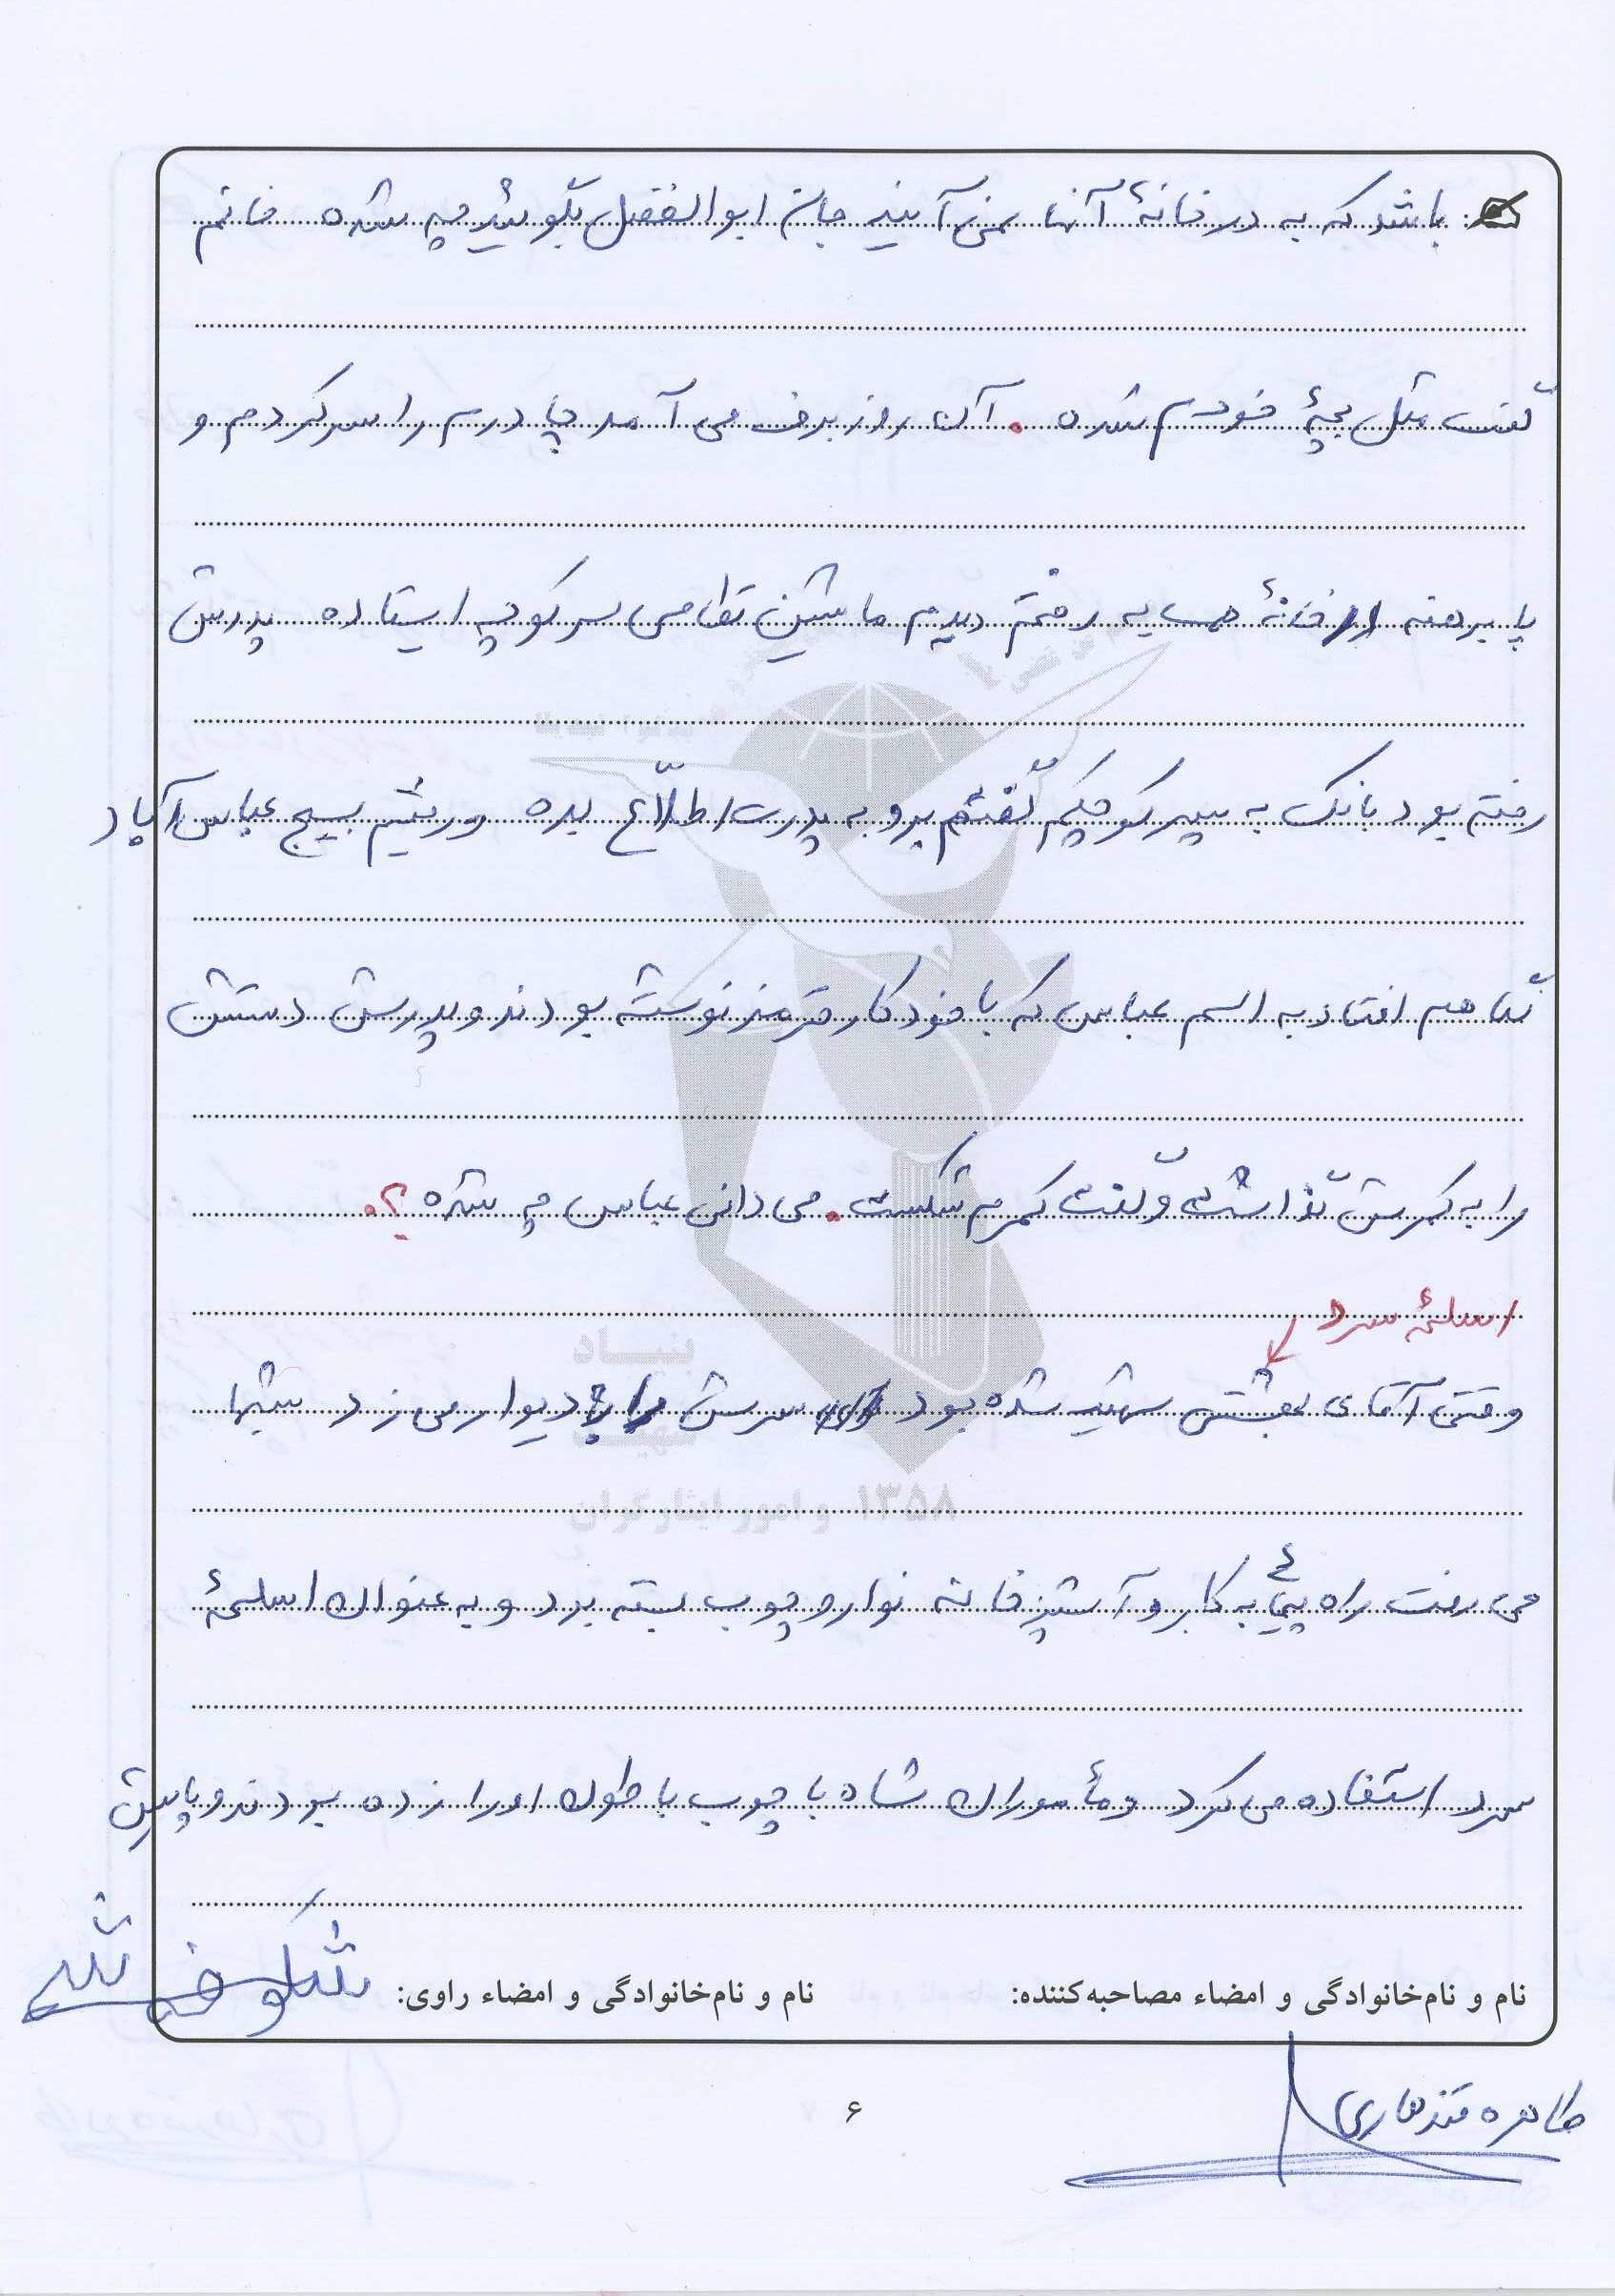 باشد که به در خانهٔ آنها نمی‌آئید جان ابوالفضل بگوئید چه شده خانم
گفت مثل بچهٔ خودم شده . آن روز برف می آمد چادرم را سر کردم و
پا برهنه خانهٔ همسایه رفتم دیدم ماشین نظامی سر کوچه ایستاده پدرش
رفته بود بانک به پسر کوچکم گفتم برو به پدرت اطلاع بده رفتیم بسیج عباس آباد
نگاهم افتاد به اسم عباس که با خودکار قرمز نوشته بودند و پدرش دستش
را به کمرش گذاشت و گفت کمرم شکست . می دانی عباس چه شده ؟.
اسلحهٔ سرد
وقتی آقای بهشتی شهید شده بود سرش را به دیوار می زد شبها
می رفت راه پیمائی به کار و آشپزخانه نوار و چوب بسته برد و به عنوان اسلحهٔ
سرد استفاده می کرد و مأموران شاه با چوب باطوم او را زده بودند و پایش
نام و نام‌خانوادگی و امضاء مصاحبه‌کننده: نام و نام‌خانوادگی و امضاء راوی:
طاهره قندهاری
۶
بنیاد
شهید
و امور ایثارگران ۱۳۵۸